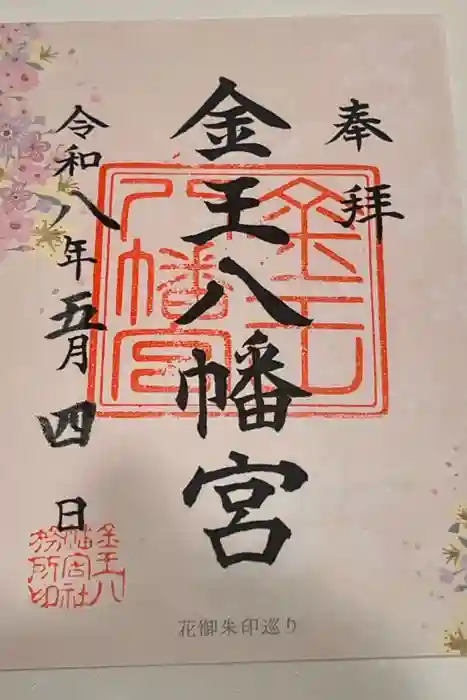 奉拝
金王八幡宮
令和八年五月四日
金王八幡宮
金王八幡宮社務所印
花御朱印巡り